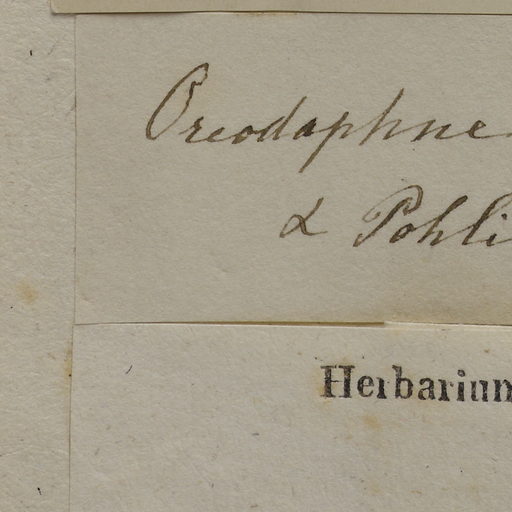 Oreodaphne
α Pohli
Herbarium